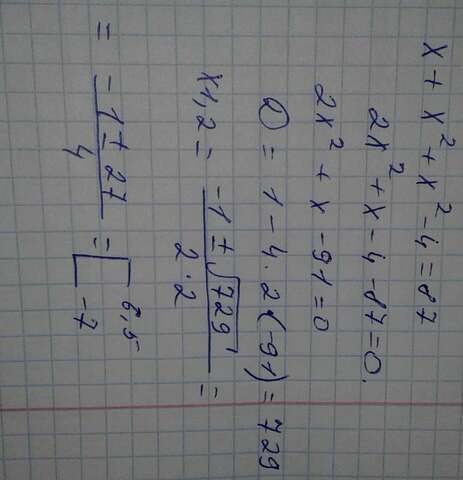 x + x² + x² - 4 = 87
2x² + x - 4 - 87 = 0.
2x² + x - 91 = 0
D = 1 - 4 · 2 (-91) = 729
x1,2 = (-1 ± √729) / (2 · 2) =
= (-1 ± 27) / 4 = [ 6,5
-7